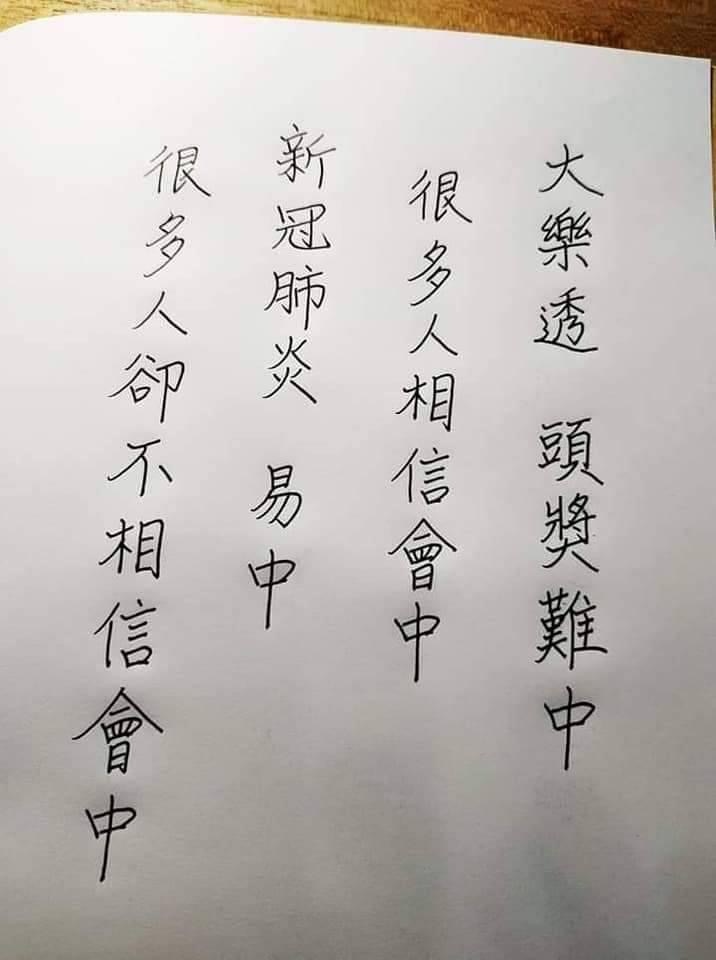 大樂透 頭獎難中
很多人相信會中
新冠肺炎 易中
很多人卻不相信會中